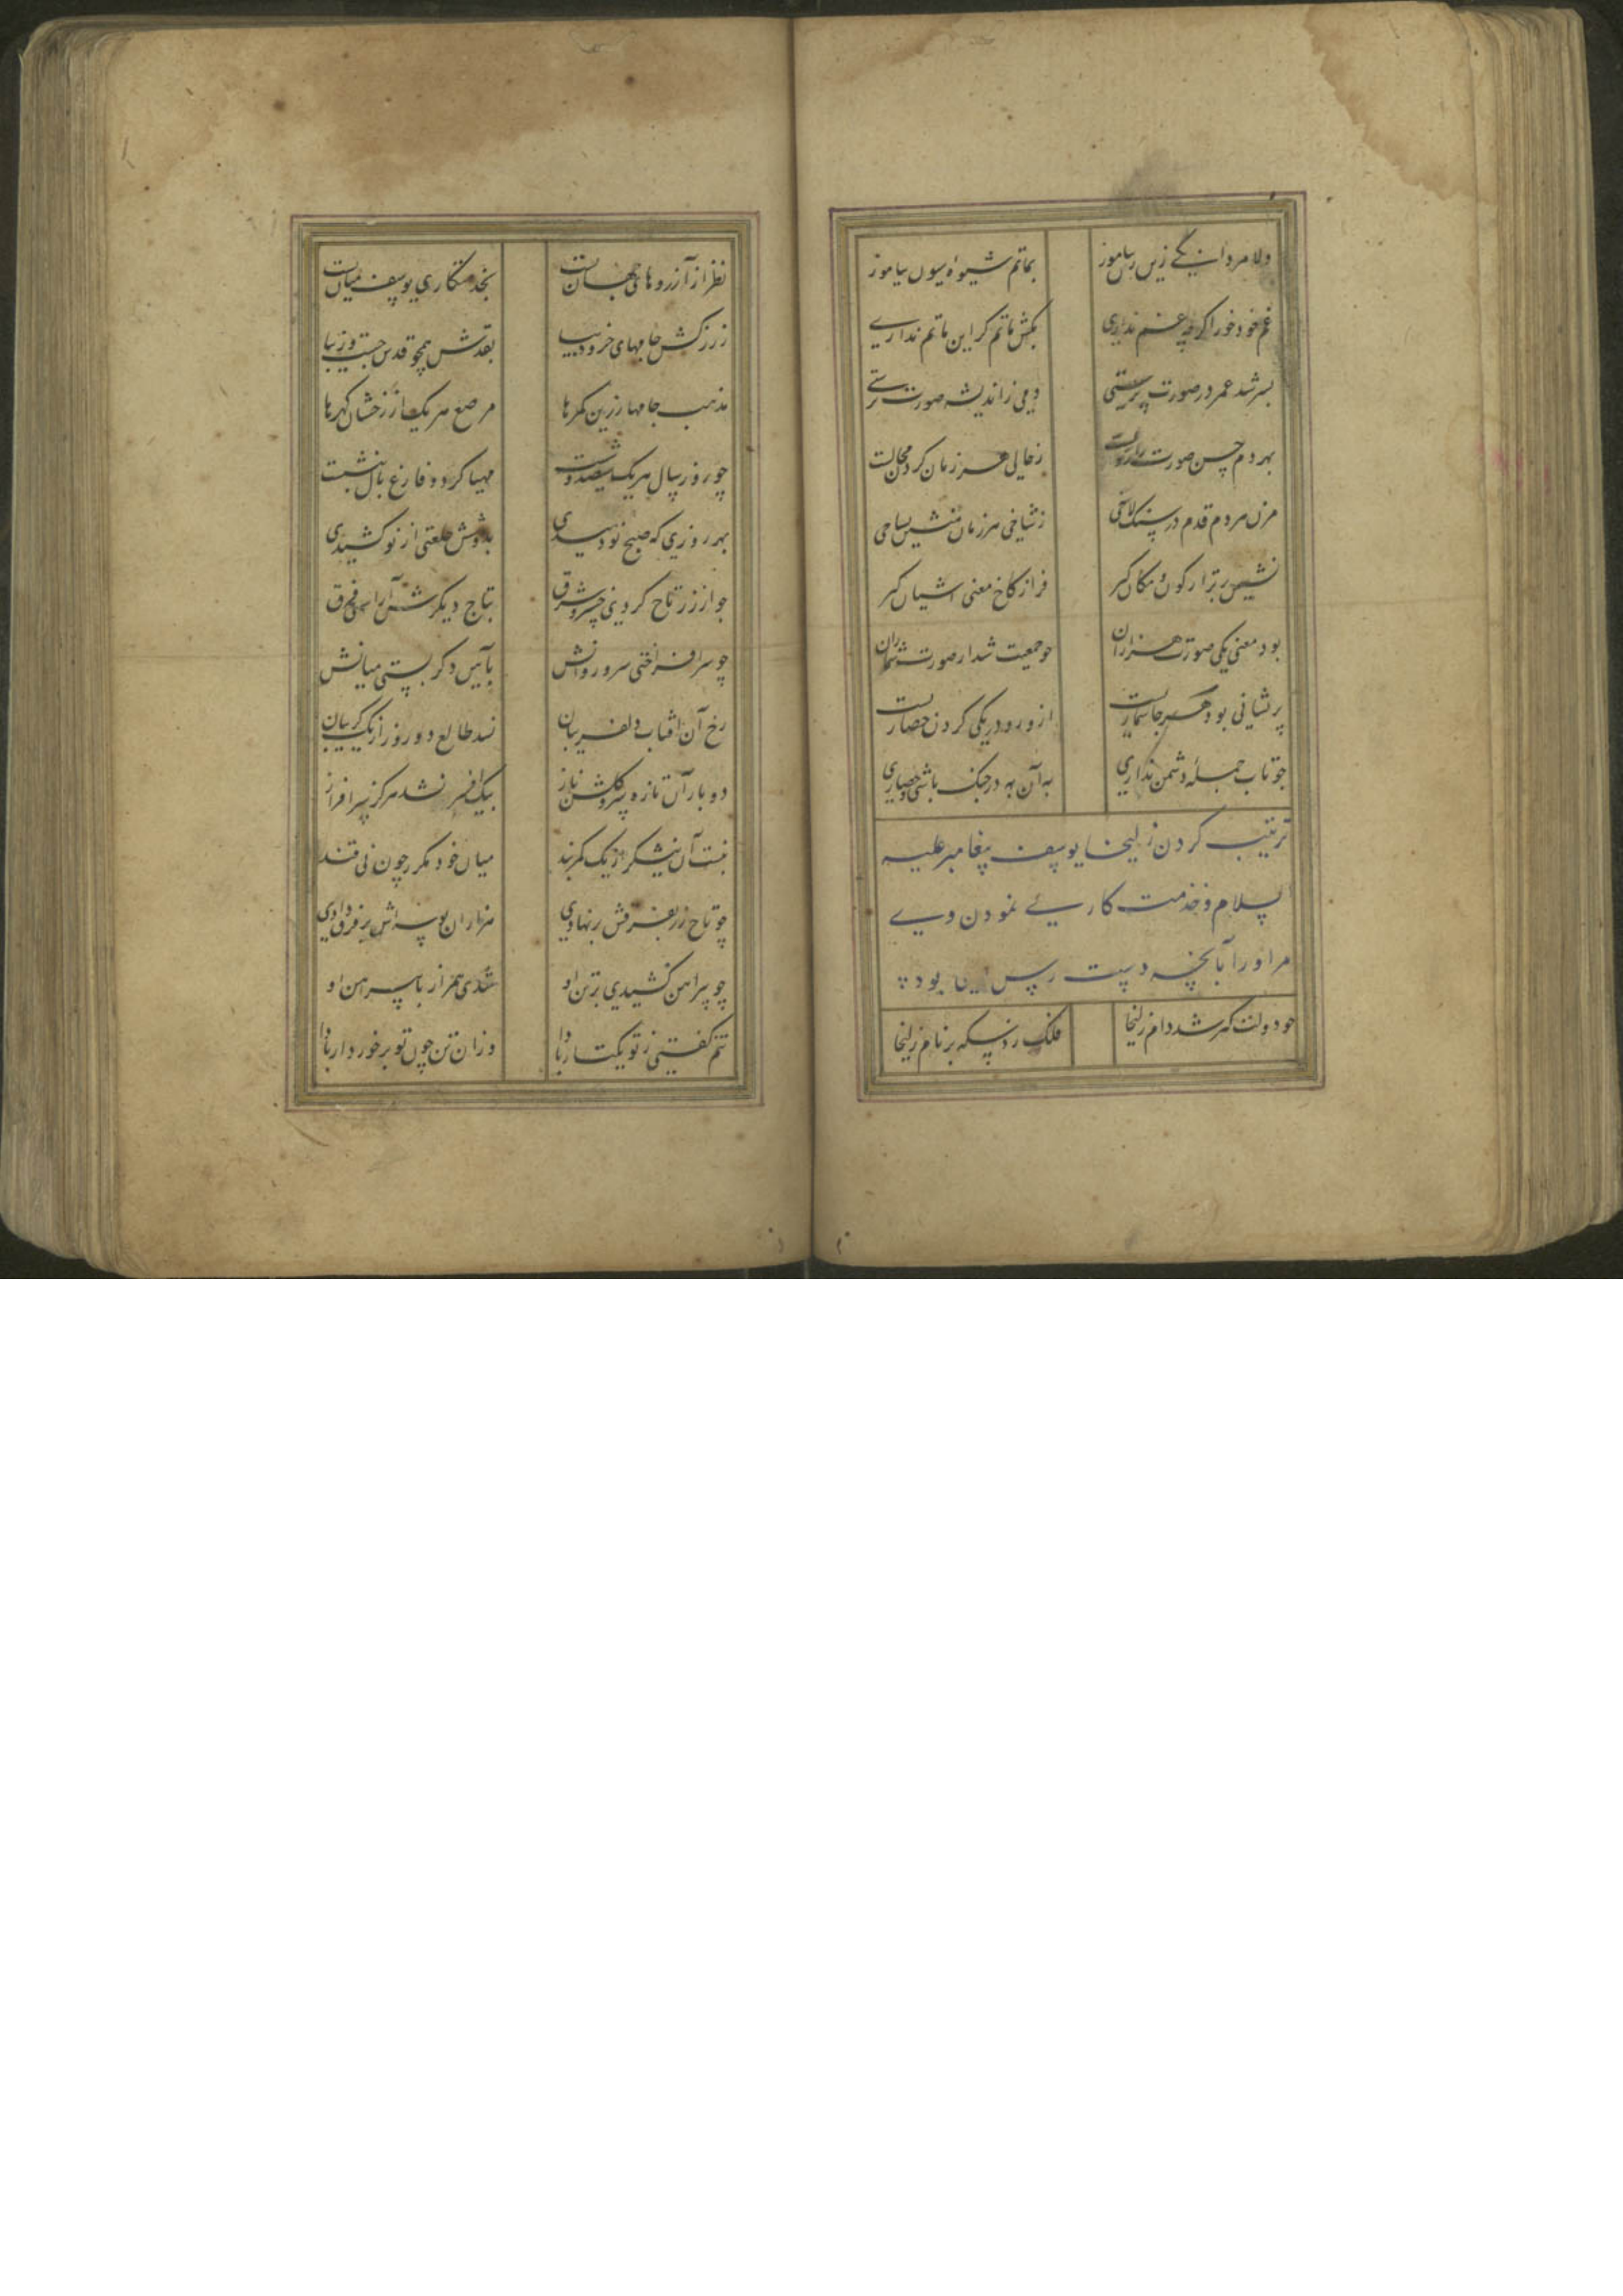 دلا مردانگی زین زن بیاموز بماتم شیوه شیون بیاموز
غم خود خور اگر چه غم نداری بکش ماتم گر این ماتم نداری
بسر شد عمر در صورت پرستی دمی ز اندیشه صورت نرستی
بهر دم حسن صورت را زوالست ز حالی هر زمان گردد بحالت
مزن هر دم قدم در سنگلاخی ز شاخی هر زمان منشین بشاخی
نشیمن برتر از کون و مکان گیر فراز کاخ معنی آشیان گیر
بود معنی یکی صورت هزاران جو جمعیت شد از صورت شماران
پریشانی بود هر جا شمارست از و رو در یکی کردن حصارست
جو تاب حمله دشمن نداری به آن به در جنک باشی حصاری
ترتیب کردن زلیخا یوسف پیغامبر علیه
السلام و خذمت کاریے نمودن ویے
مر او را بآنچه دست رس ... بود
جو دولت گیر شد دام زلیخا فلک زد سکه بر نام زلیخا
نظر از آرزوهای جهان بست بخدمتکاری یوسف میان بست
ز زرکش جامهای خز و دیبا بقدش همچو قدش جست و زیبا
مذهب جامها زرین کمرها مرصع هر یک از رخشان گهرها
چو روز سال هر یک سیصد و شصت مهیا کرد و فارغ بال بنشست
بهر روزی که صبح نو دمیدی بدوشش خلعتی از نو کشیدی
جو از زر تاج کردی خسرو شرق بتاج دیگرش آراستی فرق
چو سر افراختی سرو روانش بآیین دکر بستی میانش
رخ آن افتاب دلفریبان نشد طالع دو روز از یک گریبان
دو بار آن تازه سرو گلشن ناز بیک افسر نشد هرگز سرافراز
نبست آن نیشکر از یک کمر بند میان خود مکرر چون نی قند
چو تاج زر بفرقش برنهادی هزاران بوسه‌اش بر فرق دادی
چو پیراهن کشیدی بر تن او شدی همراز با پیراهن او
تنم گفتی ز تو یکتار بادا وزان تن چون تو برخوردار بادا